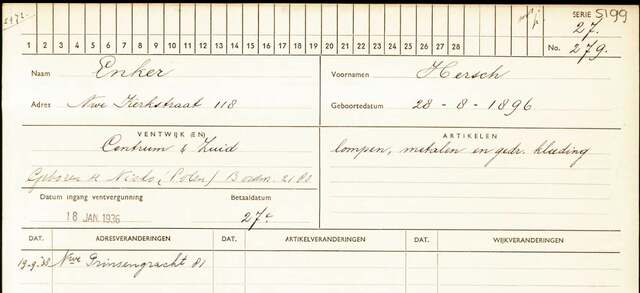 SERIE 5199
27.
1 2 3 4 5 6 7 8 9 10 11 12 13 14 15 16 17 18 19 20 21 22 23 24 25 26 27 28
No. 279.
Naam Enker
Voornamen Hersch
Adres Nwe Kerkstraat 118
Geboortedatum 28-8-1896
VENTWIJK (EN)
ARTIKELEN
Centrum & Zuid
lompen, metalen en gedr. kleeding
Geboren te (Polen)
Datum ingang ventvergunning
Betaaldatum
18 JAN. 1936
27
DAT. ADRESVERANDERINGEN DAT. ARTIKELVERANDERINGEN DAT. WIJKVERANDERINGEN
19-9-38 Nwe Prinsengracht 81